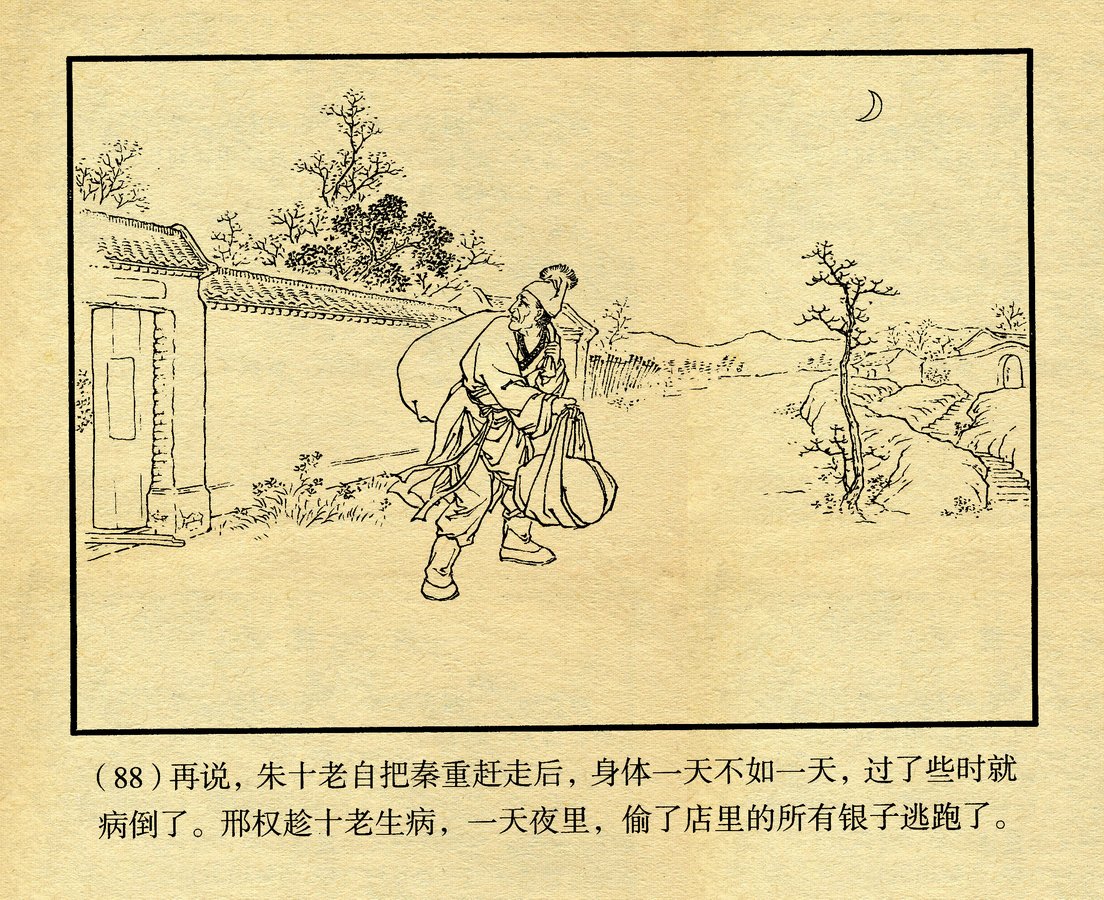 (88)再说，朱十老自把秦重赶走后，身体一天不如一天，过了些时就
病倒了。邢权趁十老生病，一天夜里，偷了店里的所有银子逃跑了。